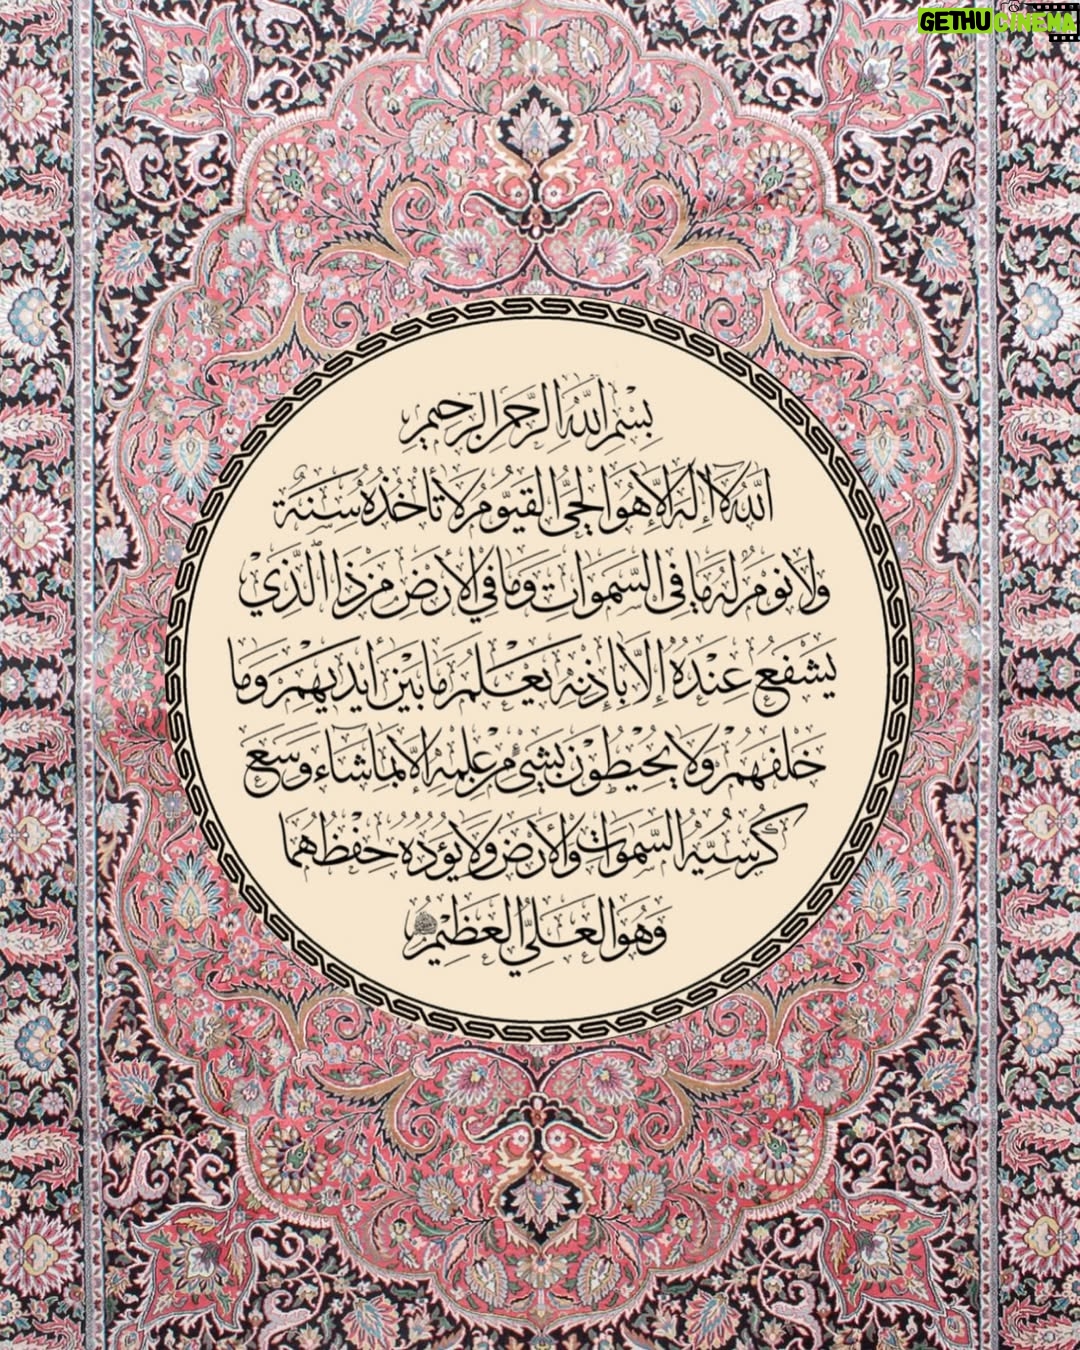 GETHUCINEMA
بِسْمِ اللَّهِ الرَّحْمَنِ الرَّحِيمِ
اللَّهُ لَا إِلَهَ إِلَّا هُوَ الْحَيُّ الْقَيُّومُ لَا تَأْخُذُهُ سِنَةٌ
وَلَا نَوْمٌ لَهُ مَا فِي السَّمَوَاتِ وَمَا فِي الْأَرْضِ مَنْ ذَا ٱلَّذِي
يَشْفَعُ عِنْدَهُ إِلَّا بِإِذْنِهِ يَعْلَمُ مَا بَيْنَ أَيْدِيهِمْ وَمَا
خَلْفَهُمْ وَلَا يُحِيطُونَ بِشَيْءٍ مِنْ عِلْمِهِ إِلَّا بِمَا شَاءَ وَسِعَ
كُرْسِيُّهُ السَّمَوَاتِ وَالْأَرْضَ وَلَا يَؤُدُهُ حِفْظُهُمَا
وَهُوَ الْعَلِيُّ الْعَظِيمُ